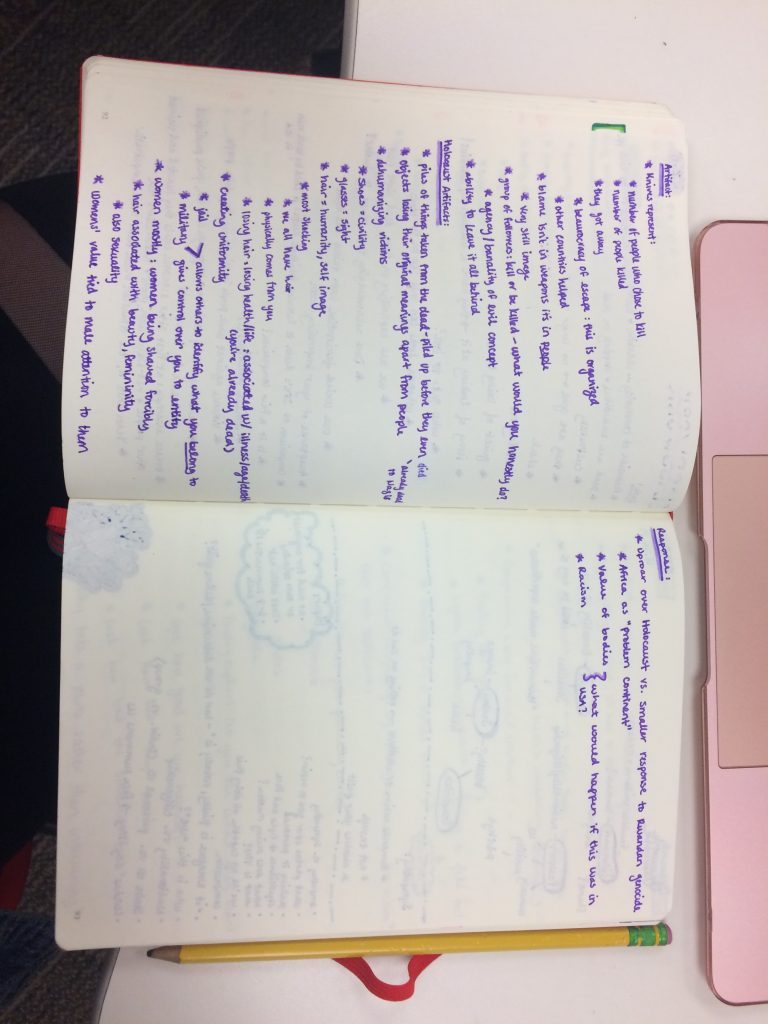 Artifact:
* Knives represent:
* number of people who chose to kill
* number of people killed
* they got away
* beaurocracy of escape : this is organized
* other countries helped
* blame isn't in weapons it's in people
* very still image
* group of followers : kill or be killed - what would you honestly do?
* agency/banality of evil concept
* ability to leave it all behind
Holocaust Artifacts:
* piles of things taken from the dead - piled up before they even did
* objects losing their original meanings apart from people
already dead to Nazis
* dehumanizing victims
* shoes = civility
* glasses = sight
* hair = humanity, self image
* most shocking
* we all have hair
* physically comes from you
* losing hair = losing health/life = associated w/ illness/age/death
(you're already dead)
* Creating uniformity
* jail
* military
allows others to identify what you belong to
gives control over you to entity
* women mostly : women being shaved forcibly,
* hair associated with beauty, femininity
* also sexuality
* womens' value tied to male attention to them
Response:
* Uproar over Holocaust vs. smaller response to Rwandan genocide
* Africa as "problem continent"
* Value of bodies
* Racism
} what would happen if this was in USA?